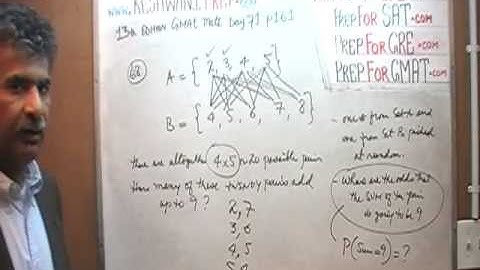 www.KESHWANI PREP.com
13th Edition GMAT Math Day 71 p161
PREP FOR SAT.com
PREP FOR GRE.com
PREP FOR GMAT.com
A = { 2, 3, 4, 5 }
B = { 4, 5, 6, 7, 8 }
- one # from Set A and
one from Set B picked
at random.
there are altogether 4x5 = 20 possible pairs
How many of these twenty pairs add
up to 9 ?
2, 7
3, 6
4, 5
5, 4
- What are the odds that
the sum of the pair
is going to be 9
P(Sum=9) = ?